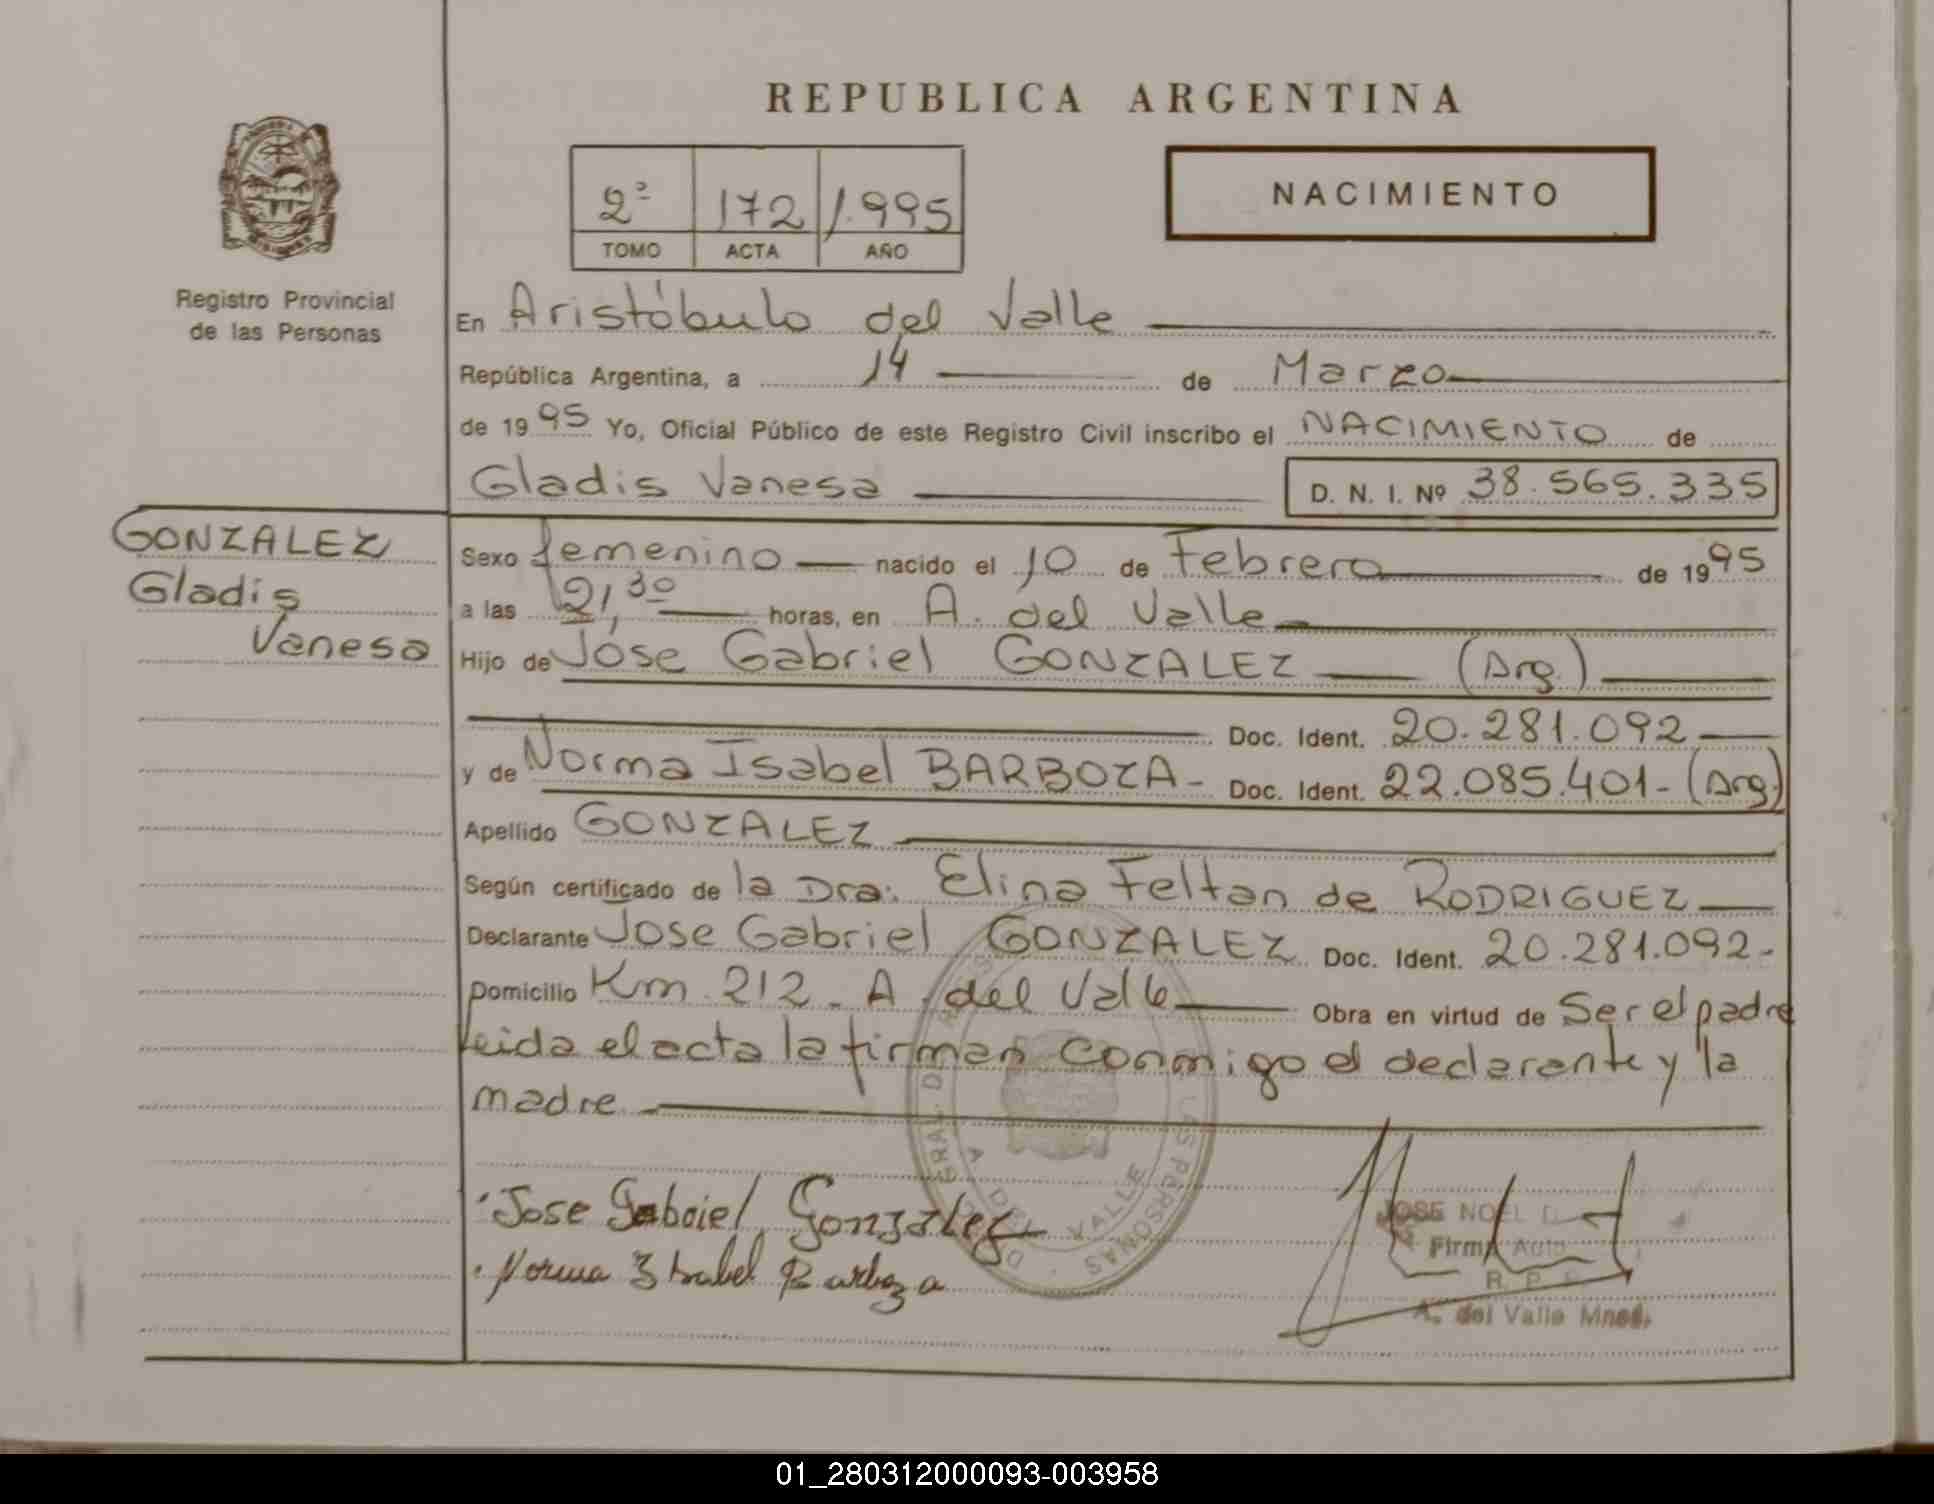 REPUBLICA ARGENTINA
NACIMIENTO
2º 172 1.995
TOMO ACTA AÑO
Registro Provincial
de las Personas
En Aristóbulo del Valle
República Argentina, a 14 de Marzo
de 1995 Yo, Oficial Público de este Registro Civil inscribo el NACIMIENTO de
Gladis Vanesa D. N. I. Nº 38.565.335
GONZALEZ
Gladis
Vanesa
Sexo femenino nacido el 10 de Febrero de 1995
a las 21,30 horas, en A. del Valle
Hijo de José Gabriel GONZALEZ (Arg.)
Doc. Ident. 20.281.092
y de Norma Isabel BARBOZA - Doc. Ident. 22.085.401 - (Arg.)
Apellido GONZALEZ
Según certificado de la Dra: Elina Feltan de RODRIGUEZ
Declarante Jose Gabriel GONZALEZ Doc. Ident. 20.281.092 -
Domicilio Km. 212 - A. del Valle Obra en virtud de Ser el padre
Leida el acta la firman conmigo el declarante y la
madre
Jose Gabriel Gonzalez
Norma Isabel Barboza
JOSE NOEL
Firma
A. del Valle Mnes.
PERSONAS
A. DEL VALLE
01_280312000093-003958